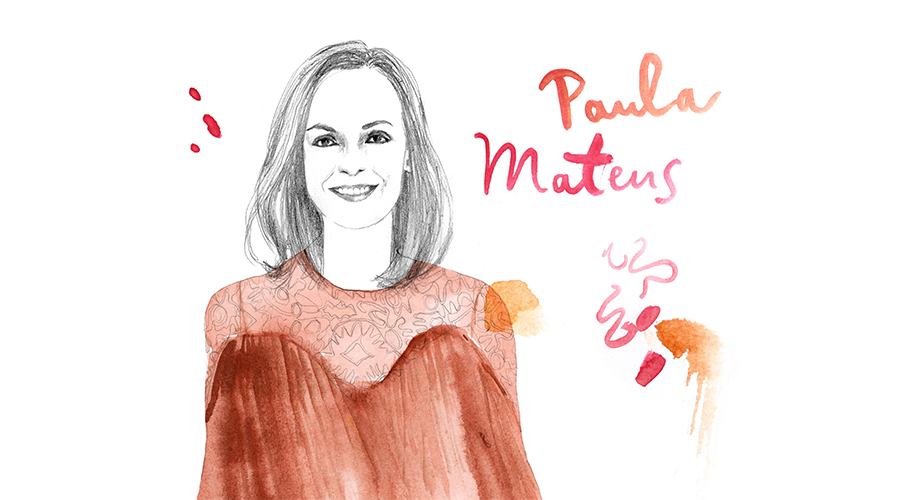 Paula
Mateus